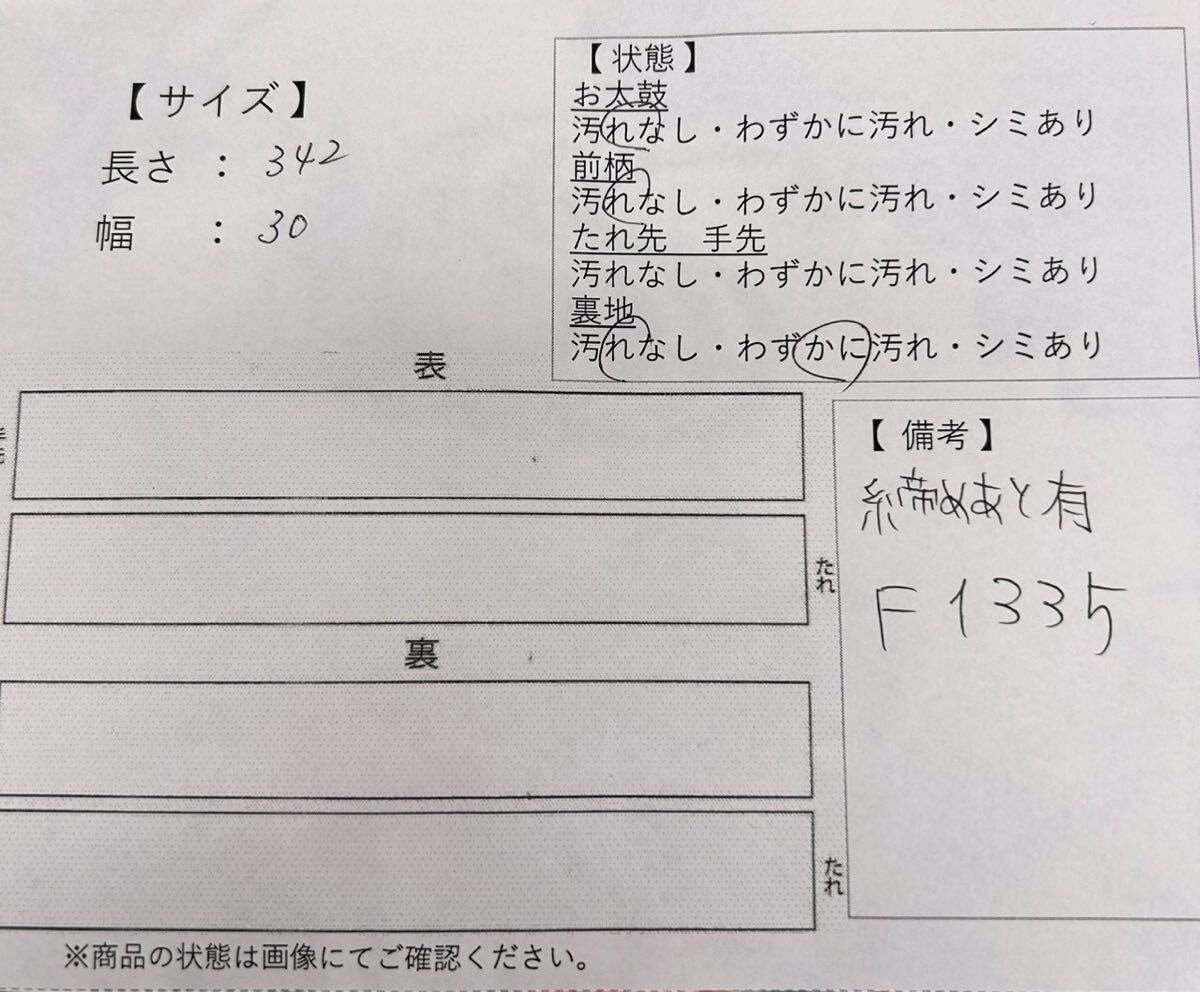 【サイズ】
長さ : 342
幅 : 30
【状態】
お太鼓
汚れなし・わずかに汚れ・シミあり
前柄
汚れなし・わずかに汚れ・シミあり
たれ先 手先
汚れなし・わずかに汚れ・シミあり
裏地
汚れなし・わずかに汚れ・シミあり
表
たれ
裏
たれ
【備考】
締めあと有
F1335
※商品の状態は画像にてご確認ください。